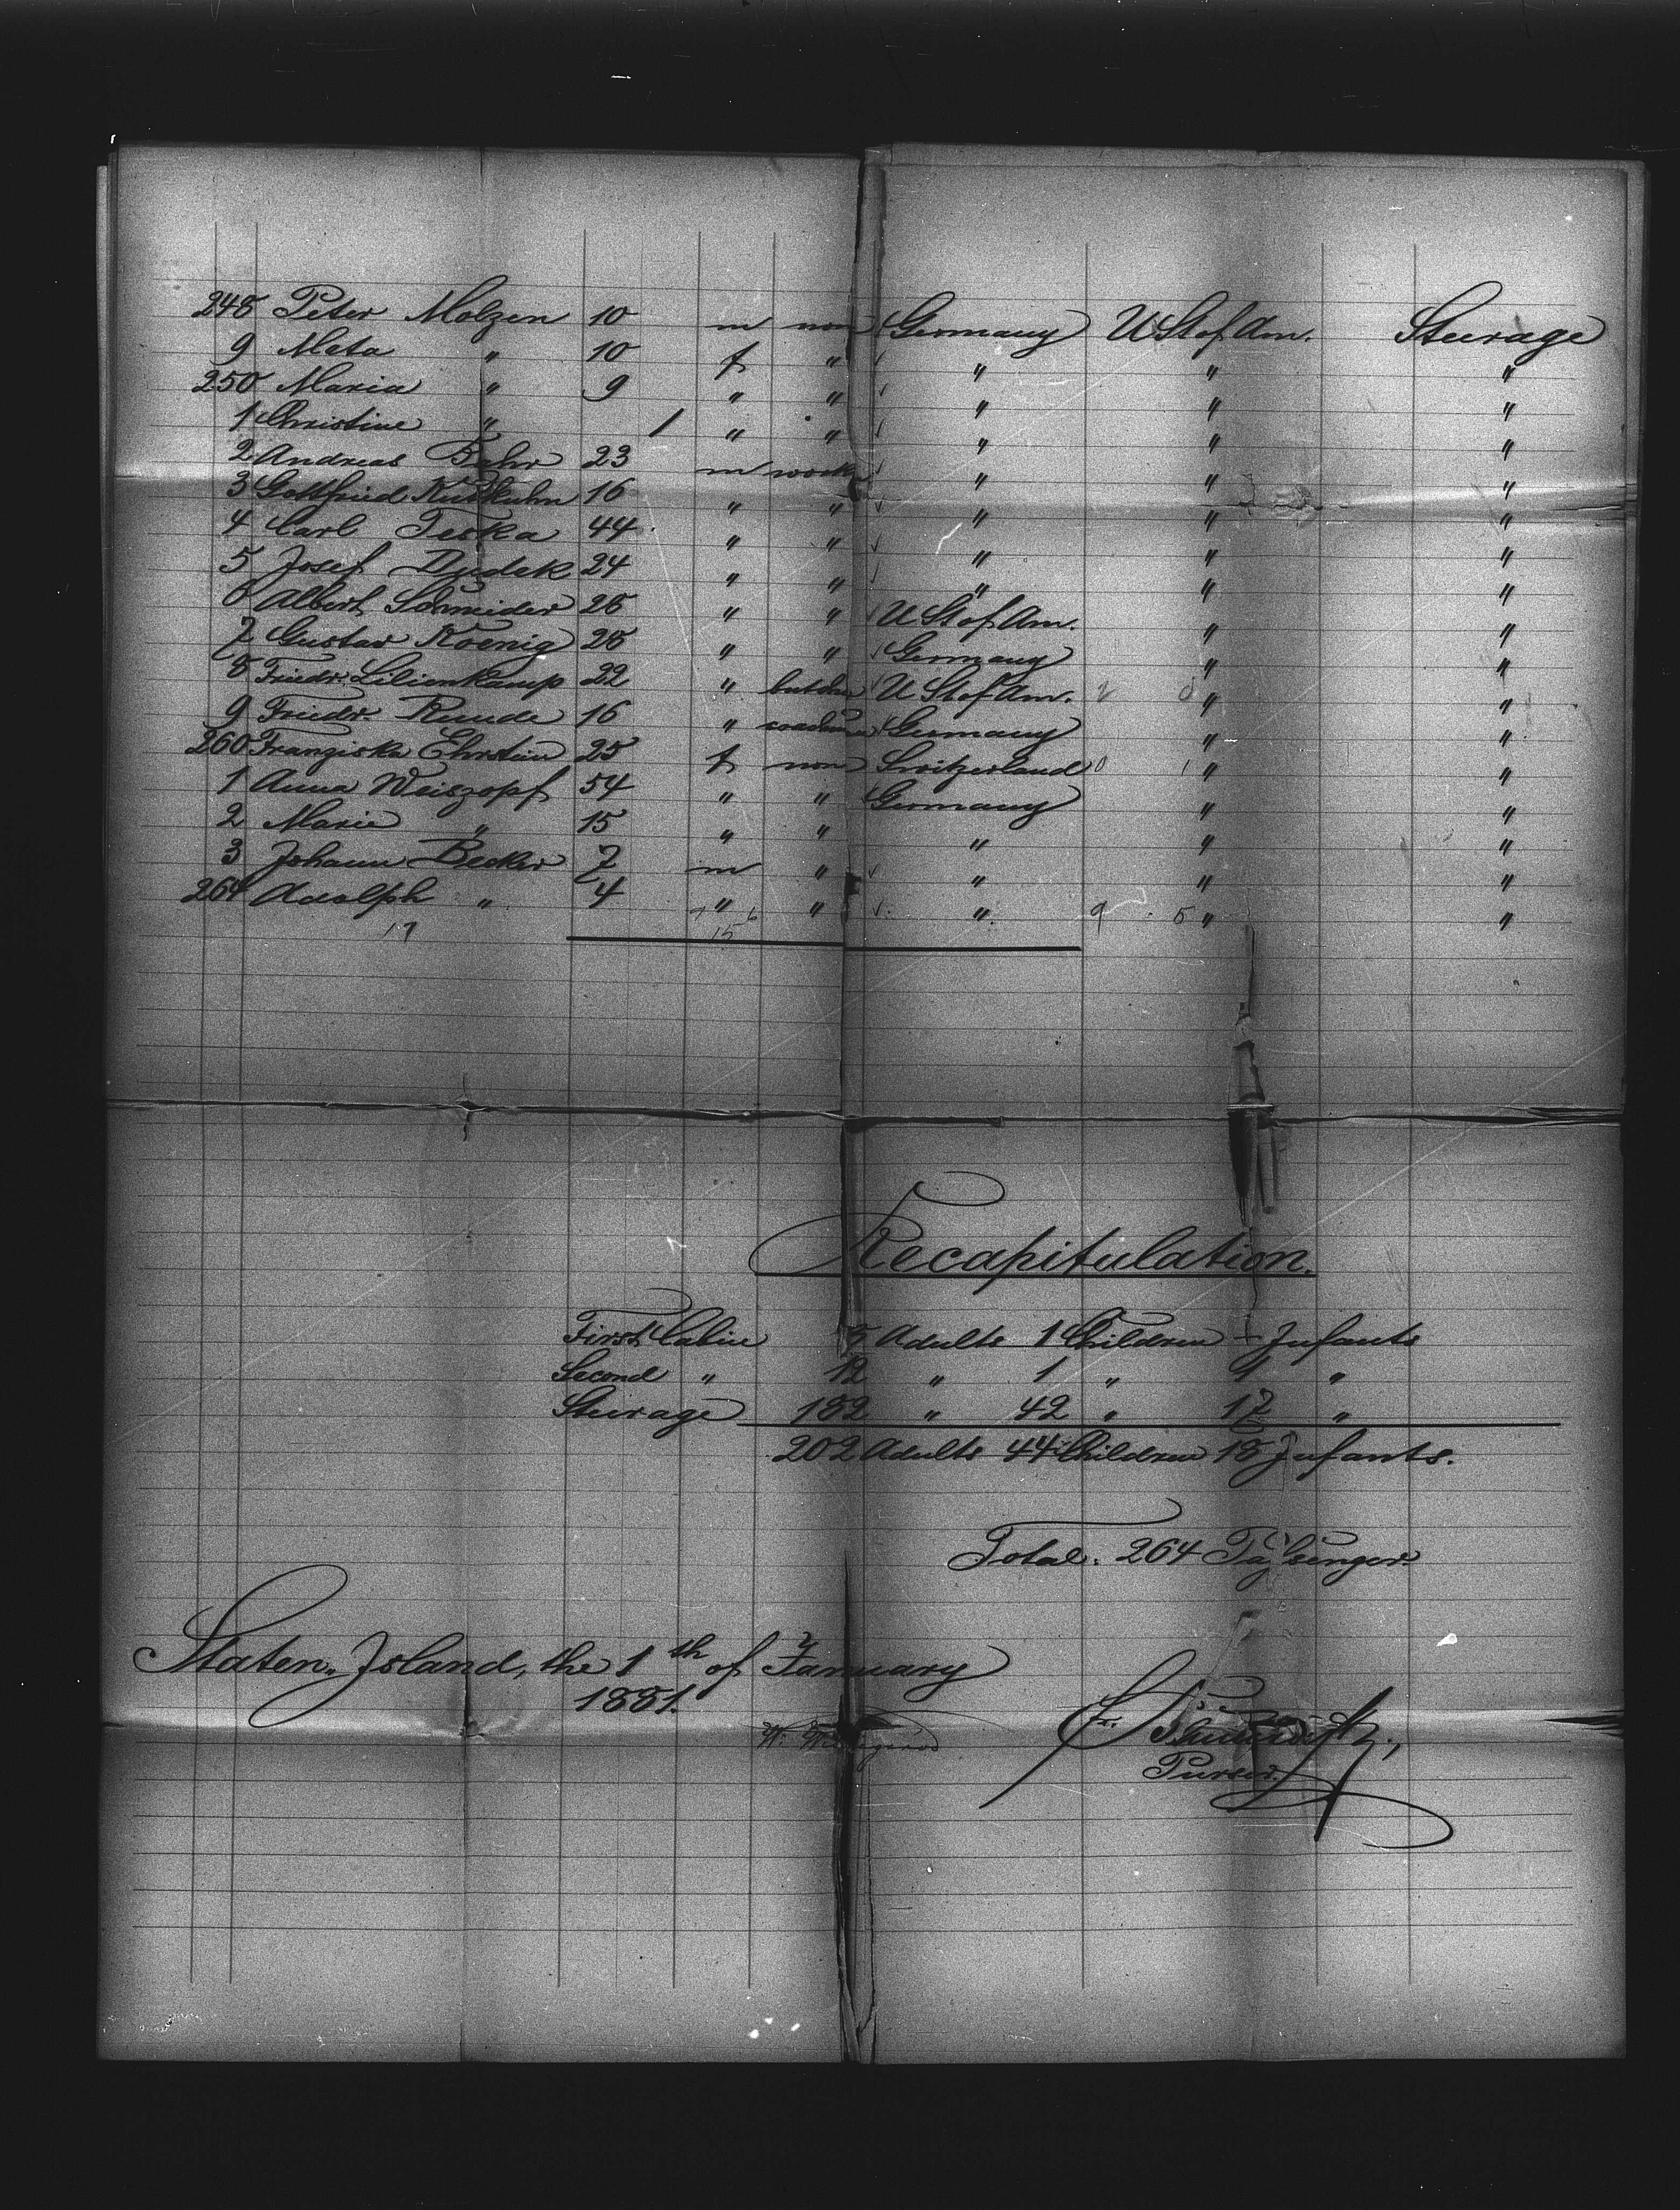 248 Peter Molzen 10 m non Germany U St of Am. Steerage
9 Meta " 10 f " " " "
250 Maria " 9 " " " " "
1 Christine " 1 " " " " "
2 Andreas Bahr 23 m " " "
3 Gottfried 16 " " " " "
4 Carl Teska 44 " " " " "
5 Josef Dudek 24 " " " " "
6 Albert Schneider 28 " " U St of Am. " "
7 Gustav Koenig 28 " " Germany " "
8 Friedr. Lilienkamp 22 " butcher U St of Am. " "
9 Friedr. Runde 16 " Germany " "
260 Franziska Ehrstein 25 f non Switzerland " "
1 Anna Weiszopf 54 " " Germany " "
2 Marie " 15 " " " " "
3 Johann Becker 7 m " " " "
264 Adolph " 4 " " " " "
17 15
Recapitulation.
First Cabin 5 Adults 1 Children - Infants
Second " 12 " 1 " 1 "
Steerage 182 " 42 " 17 "
202 Adults 44 Children 18 Infants.
Total: 264 Passenger.
Staten-Island, the 1th of January
1881.
Purser.